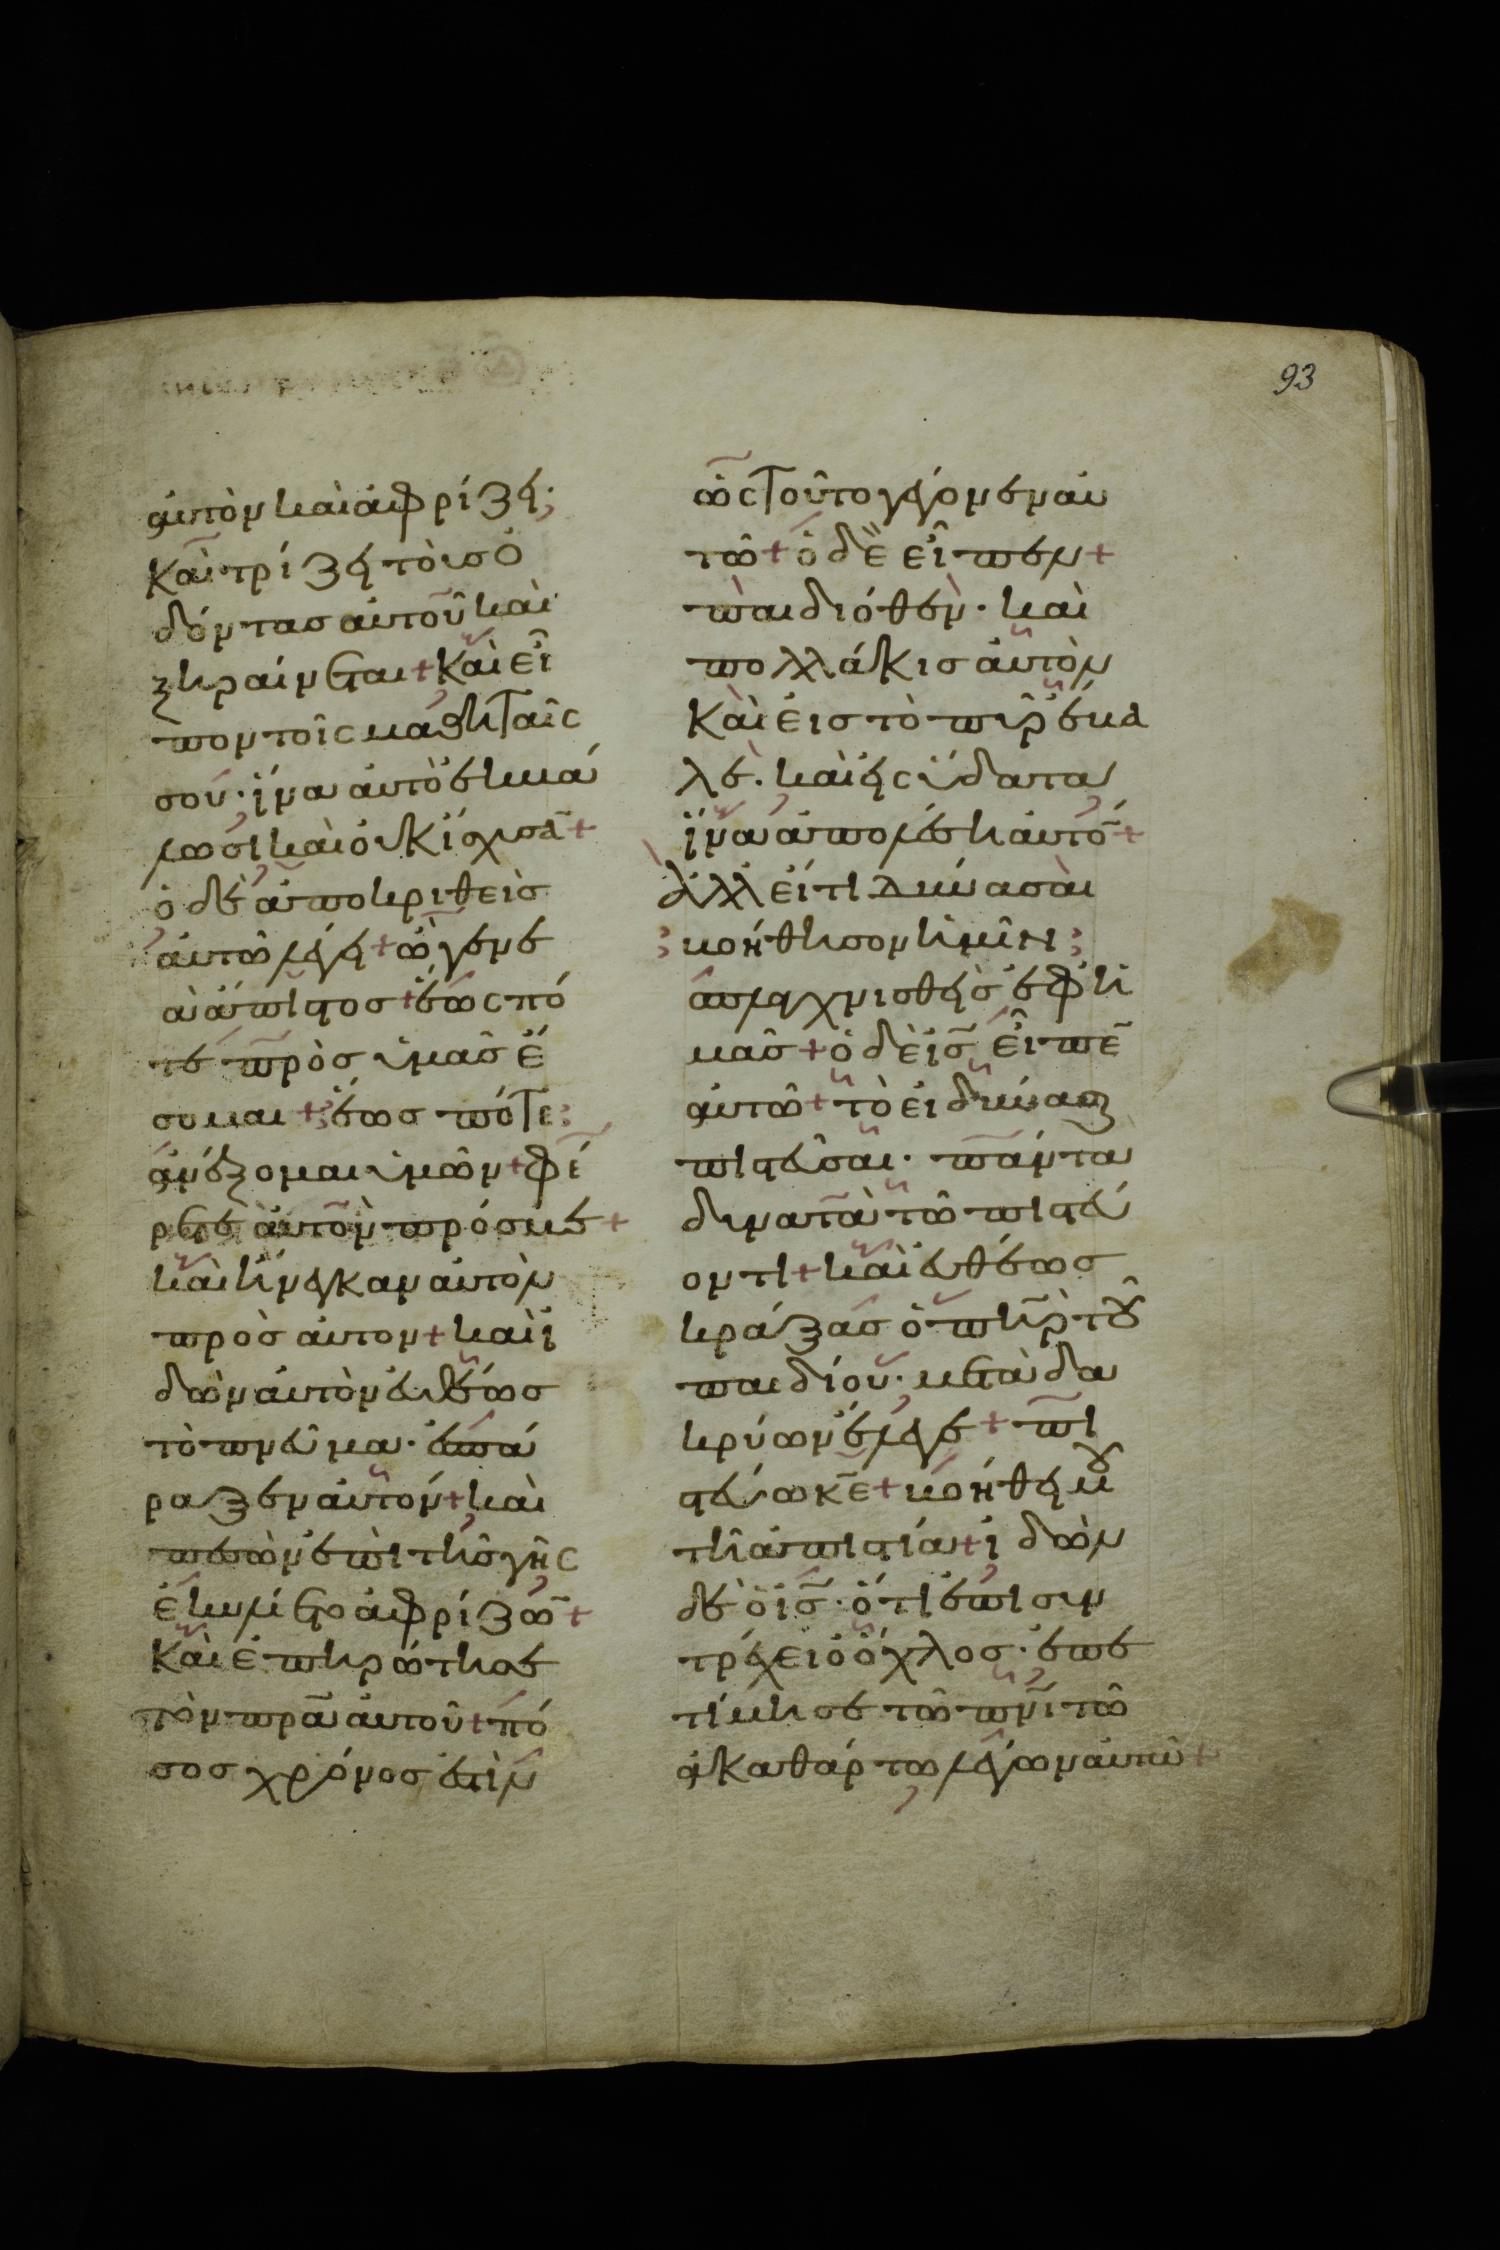 93
αὐτὸν καὶ ἀφρίζει·
Καὶ τρίζει τοὺσ ὀ
δόντασ αὐτοῦ καὶ
ξηραίνεται + Καὶ εἶ
πον τοῖς μαθηταῖς
σου· ἵνα αὐτὸ ἐκβά
λωσι καὶ οὐκ ἴσχυσᾱ +
ὁ δὲ ἀποκριθεὶσ
αὐτῶ λέγει + ὦ γενε
ὰ ἄπιστοσ + ἕως πό
τε πρὸσ ὑμᾶσ ἔ
σομαι + ἕωσ πότε;
ἀνέξομαι ὑμῶν + φέ
ρετε αὐτὸν πρόσ με +
καὶ ἤνεγκαν αὐτὸν
πρὸσ αὐτον + καὶ ἰ
δὼν αὐτὸν εὐθέωσ
τὸ πνεῦμα· ἐσπά
ραξεν αὐτόν + καὶ
πεσὼν ἐπὶ τῆσ γῆς
ἐκυλίετο ἀφρίζω̄ +
Καὶ ἐπηρώτησε
τὸν πρ̄α αὐτοῦ + πό
σοσ χρόνοσ ἐστὶν
ὡς τοῦτο γέγονεν αὐ
τῶ + ὁ δὲ εἶπεν +
παιδιόθεν· καὶ
πολλάκισ αὐτὸν
Καὶ εἰσ τὸ πῦρ ἔβα
λε· καὶ εἰς ὕδατα
ἵνα ἀπολέση αὐτό +
ἀλλ εἴ τι δύνασαι
βοήθησον ἡμῖν;
σπλαχνισθεὶσ ἐφ ἡ
μᾶσ + ὁ δὲ ισ̄ εἶπε̄
αὐτῶ + τὸ εἰ δύνασαι
πιστεῦσαι· πάντα
δυνατὰ τῶ πιστεύ
οντι + καὶ εὐθέωσ
κράξασ ὁ πη̄ρ τοῦ
παιδίου· μετὰ δα
κρύων ἔλεγε + πι
στεύω κ̄ε + βοήθει μου
τῆ ἀπιστία + ἰδὼν
δὲ ὁ ισ̄· ὅτι ἐπισυν
τρέχει ὁ ὄχλοσ· ἐπε
τίμησε τῶ πν̄ι τῶ
ἀκαθάρτω λέγων αὐτῶ +